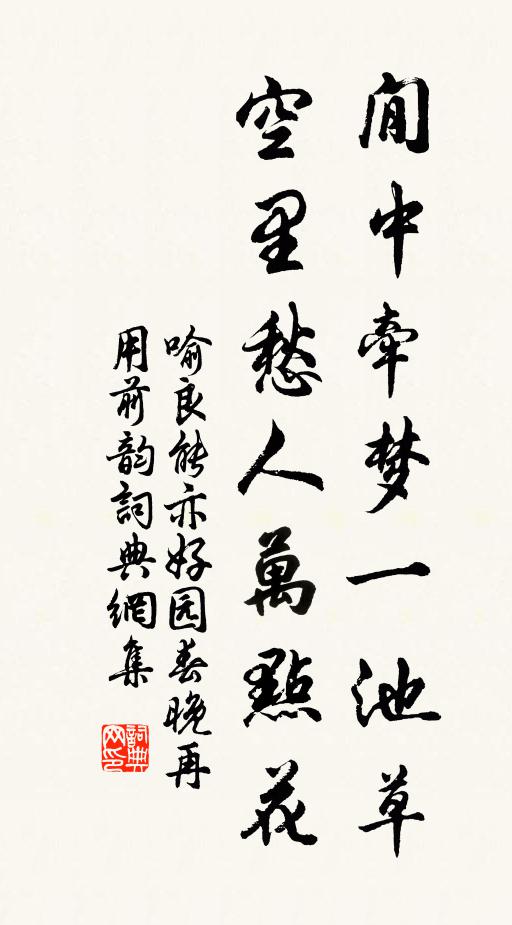 閒中牽梦一池草
空里愁人萬點花
喻良能亦好园春晚再
用前韵詞典網集
詞典
网印